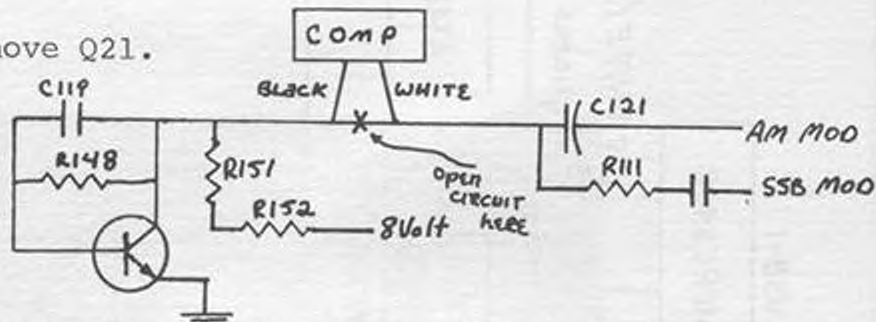 move Q21.
COMP
BLACK
WHITE
C119
R148
R151
R152
8Volt
OPEN
CIRCUIT
HERE
C121
AM MOD
R111
SSB MOD